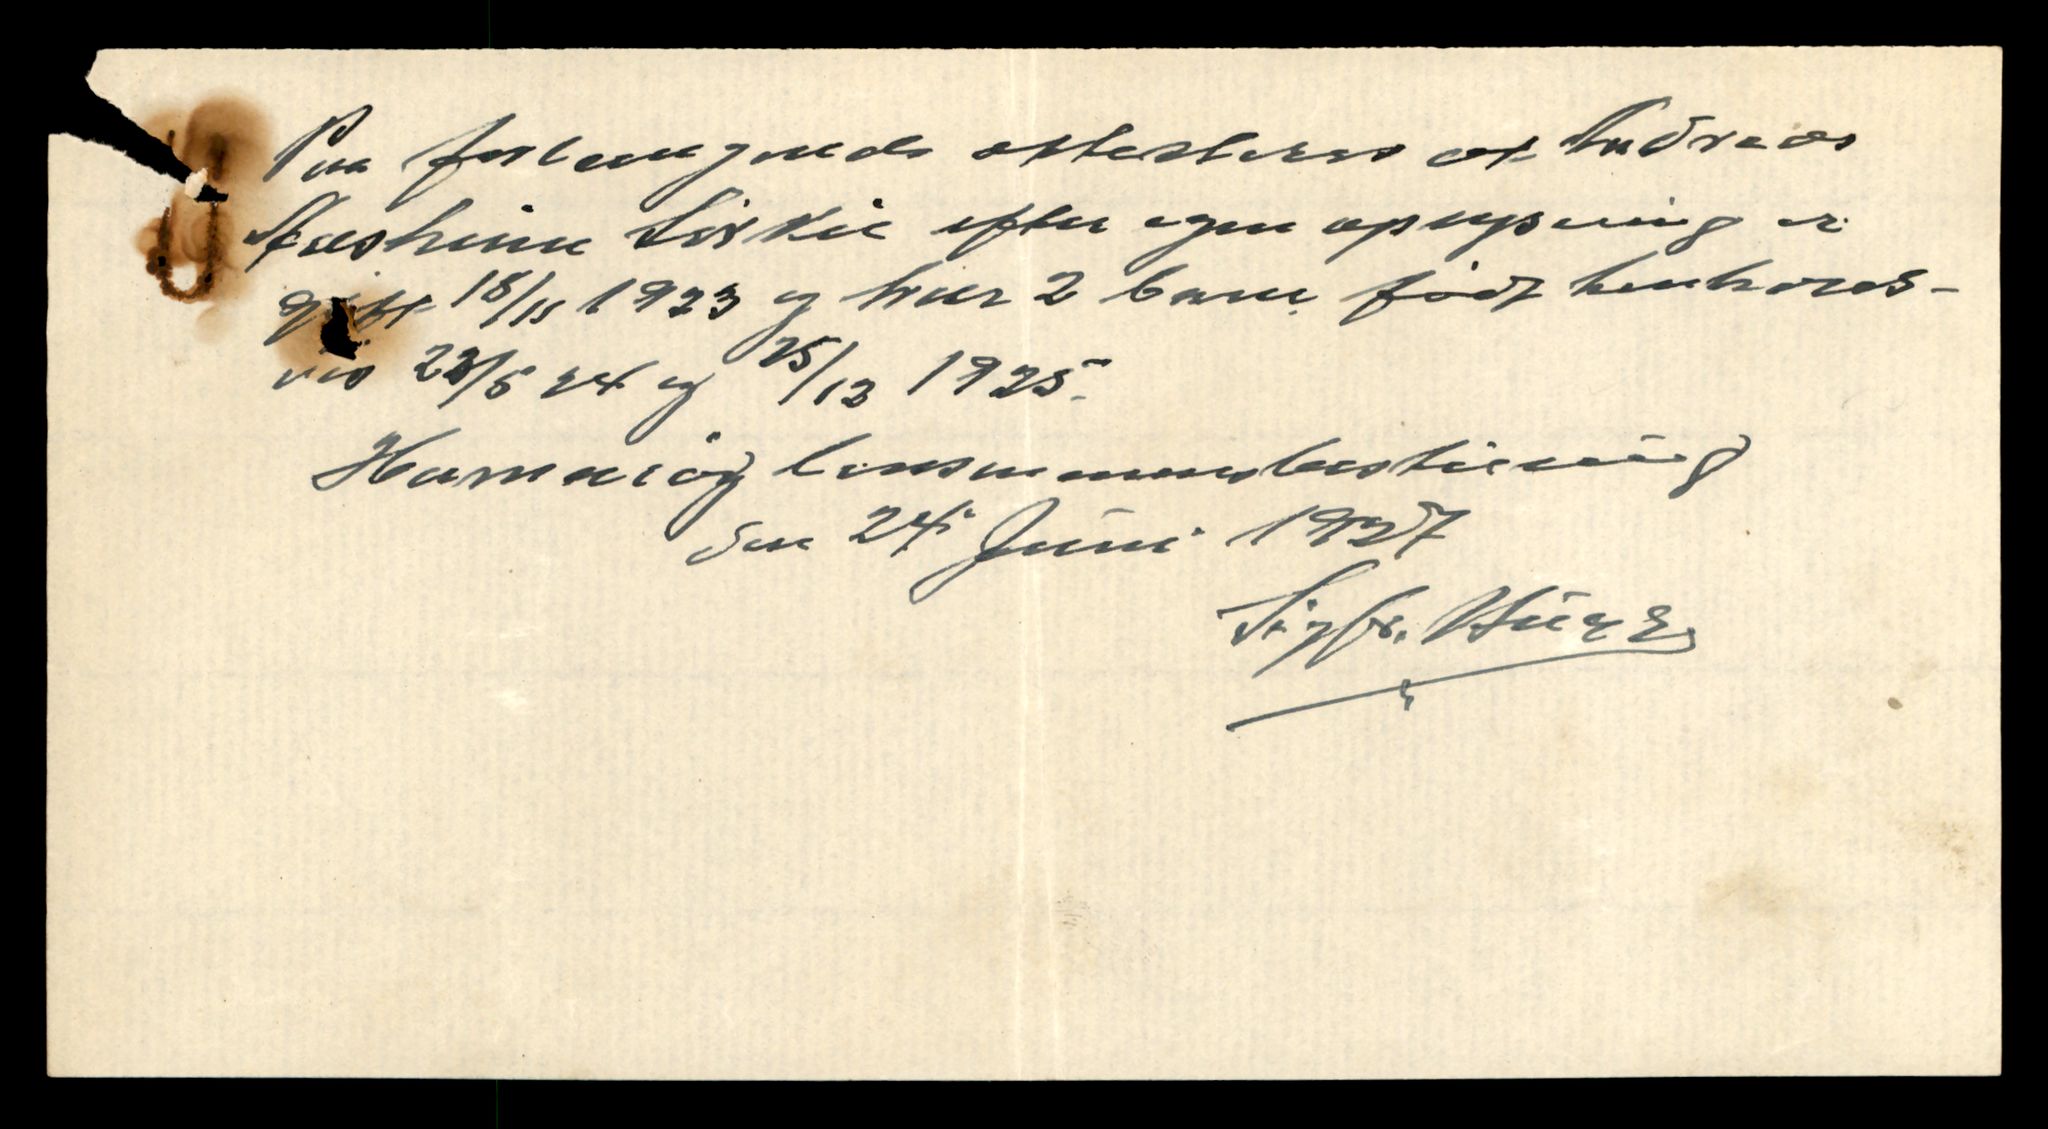 Paa forlangende attesteres at Andreas
Søskin efter egen opgivning er
gift 18/11 1923 og har 2 barn, født henholds-
vis 23/5 24 og 25/12 1925.
Hamarøy lensmannsbestilling
den 24 Juni 1927
Sigfr.